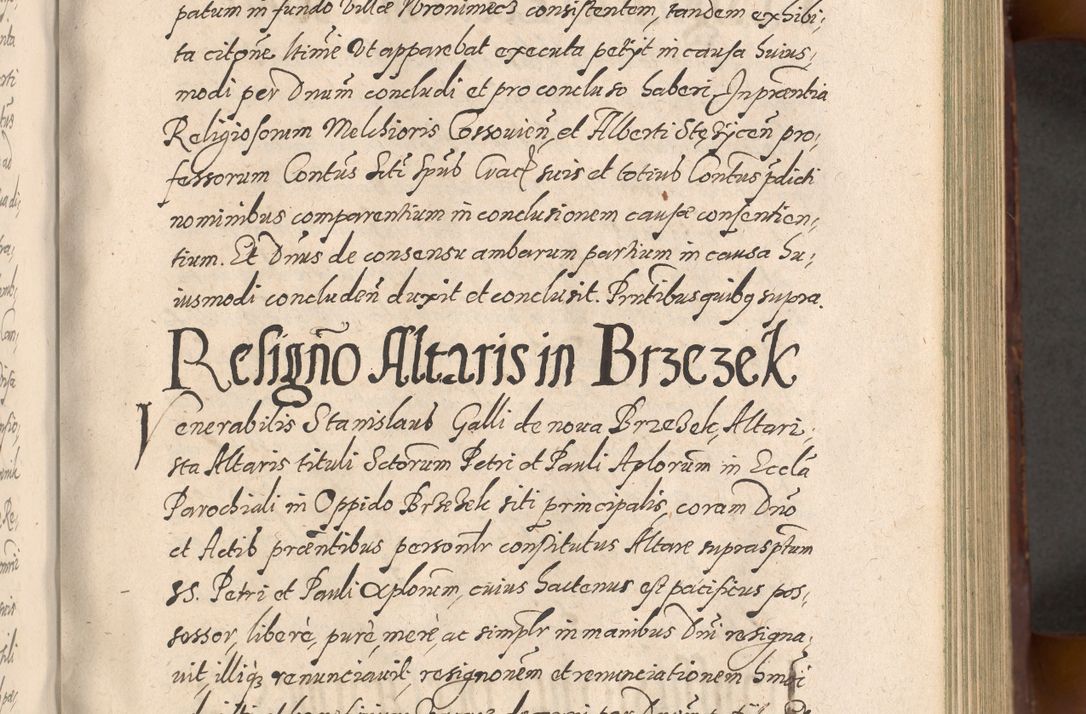 patum in fundo Villæ Wronimecz consistentem, tandem exhibi,
ta citõne ltimè Ut apparebat executa petÿt in causa huius,
modi per Dnum̃ concludi et pro concluso haberi, In præntia
Religiosorum Melchioris Cossouien̄, et Alberti Stęzÿcen̄ pro,
fessorum Contus̃ Sti Spus̃ Crac suis et totius Contus̃ pdicti
nominibus comparentium in conclusionem causæ consentien,
tium. Et Dnus̃ de consensu ambarum partium in causa hu,
iusmodi concluden̄ duxit et conclusit. Prntibus quibȝ supra.
Resignõ Altaris in Brzezek
Venerabilis Stanislaus Galli de noua Brzezek, Altari,
sta Altaris tituli Sctorum̃ Petri et Pauli Aplorum̃ in Eccla
Parochiali in Oppido Brzezek siti principalis, coram Dnõ
et Actis præn̄tibus personlr constitutus Altare suprasptum
SS. Petri et Pauli Aplorum̃, cuius hactenus est pacificus pos,
sessor, liberè, purè, merè, ac simplr in manibus Dni resigna,
uit, illiqȝ renunciauit, resignonem̃ et renunciationem hmoi